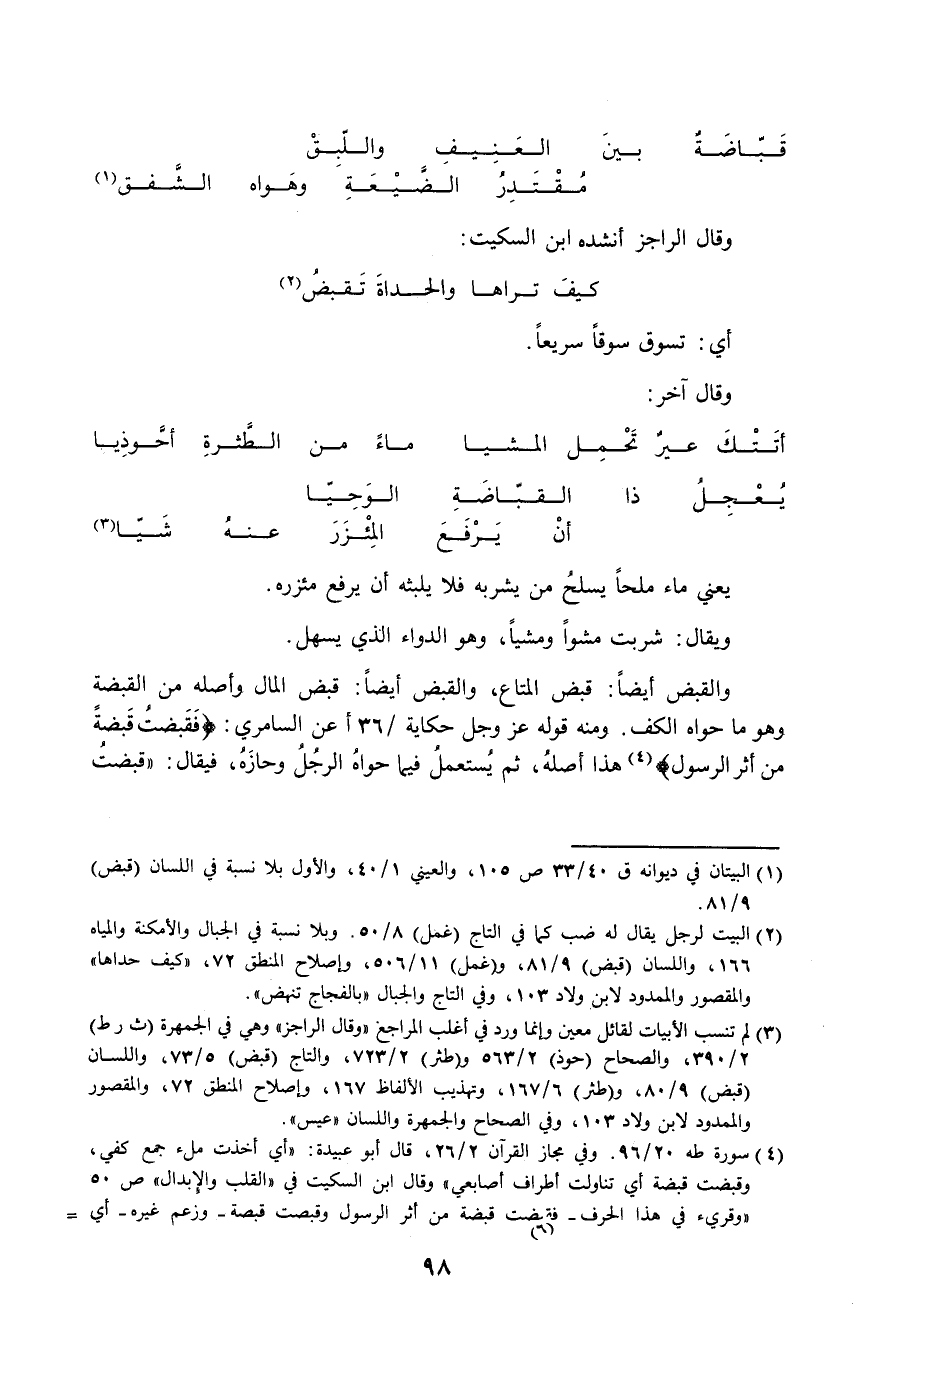 قَبّاضَةٌ بينَ العَنِيفِ واللَّبِقْ
مُقْتَدِرُ الضَّيْعَةِ وهَواه الشَّفق(١)
وقال الراجز أنشده ابن السكيت:
كيفَ تراها والحداةَ تَقبضُ(٢)
أي: تسوق سوقاً سريعاً.
وقال آخر:
أتَتْكَ عيرٌ تَحْمِل المشيا ماءً من الطَّثرةِ أحَّوذِيا
يُعْجِلُ ذا القبّاضَةِ الوَحِيّا
أنْ يَرْفَعَ المِئْزَرَ عنهُ شَيّا(٣)
يعني ماء ملحاً يسلحُ من يشربه فلا يلبثه أن يرفع مئزره.
ويقال: شربت مشواً ومشياً، وهو الدواء الذي يسهل.
والقبض أيضاً: قبض المتاع، والقبض أيضاً: قبض المال وأصله من القبضة
وهو ما حواه الكف. ومنه قوله عز وجل حكاية /٣٦ أ عن السامري: ﴿فَقَبضتُ قَبضةً
من أثر الرسول﴾(٤) هذا أصلهُ، ثم يُستعملُ فيما حواهُ الرجُلُ وحازَهُ، فيقال: «قبضتُ
(١) البيتان في ديوانه ق ٣٣/٤٠ ص ١٠٥، والعيني ٤٠/١، والأول بلا نسبة في اللسان (قبض)
٨١/٩.
(٢) البيت لرجل يقال له ضب كما في التاج (غمل) ٥٠/٨. وبلا نسبة في الجبال والأمكنة والمياه
١٦٦، واللسان (قبض) ٨١/٩، و(غمل) ٥٠٦/١١، وإصلاح المنطق ٧٢، «كيف حداها»
والمقصور والممدود لابن ولاد ١٠٣، وفي التاج والجبال «بالفجاج تنهض».
(٣) لم تنسب الأبيات لقائل معين وإنما ورد في أغلب المراجع «وقال الراجز» وهي في الجمهرة (ث ر ط)
٣٩٠/٢، والصحاح (حوذ) ٥٦٣/٢ و(طثر) ٧٢٣/٢، والتاج (قبض) ٧٣/٥، واللسان
(قبض) ٨٠/٩، و(طثر) ١٦٧/٦، وتهذيب الألفاظ ١٦٧، وإصلاح المنطق ٧٢، والمقصور
والممدود لابن ولاد ١٠٣، وفي الصحاح والجمهرة واللسان «عيس».
(٤) سورة طه ٩٦/٢٠. وفي مجاز القرآن ٢٦/٢، قال أبو عبيدة: «أي أخذت ملء جمع كفي،
وقبضت قبضة أي تناولت أطراف أصابعي» وقال ابن السكيت في «القلب والإبدال» ص ٥٠
«وقريء في هذا الحرف ـ فقبضت قبضة من أثر الرسول وقبصت قبصة ـ وزعم غيره ـ أي =
(٦)
٩٨